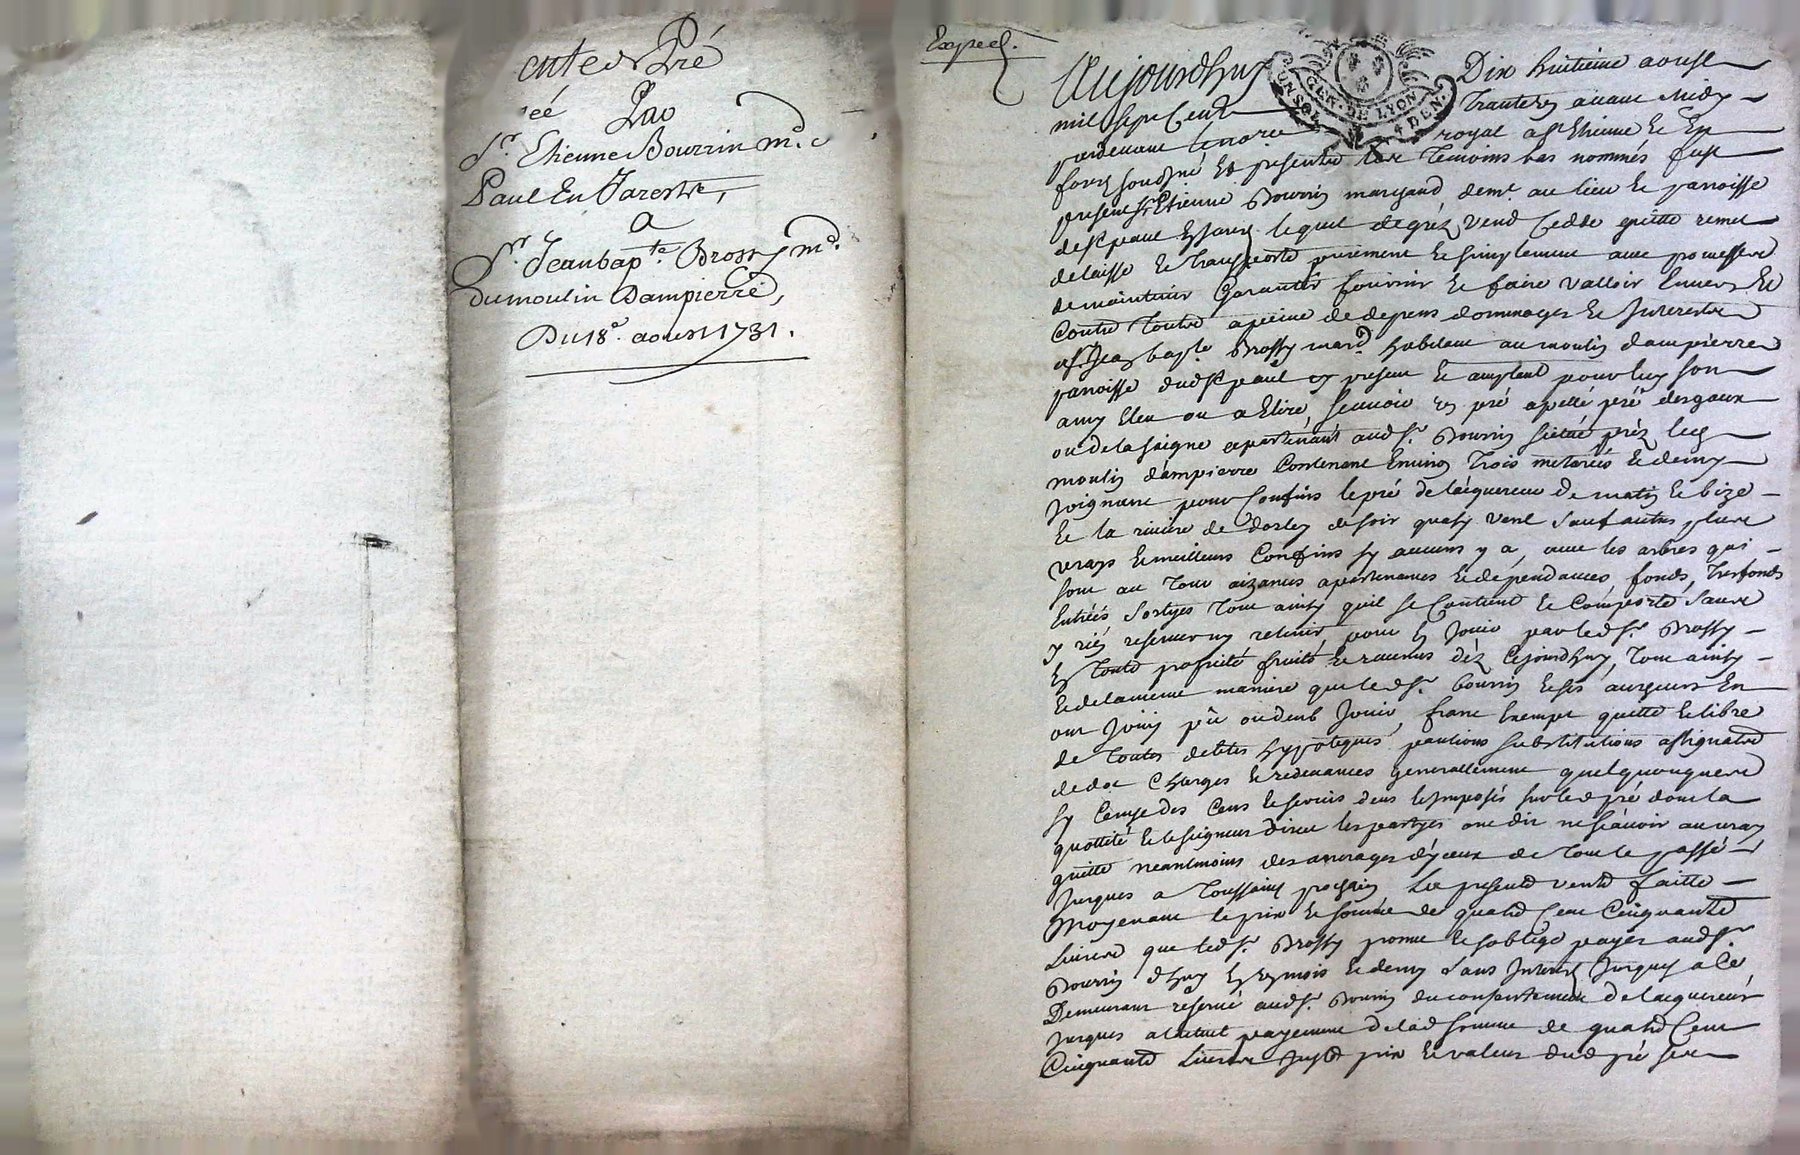 ente de Pré
Par
Sr. Etienne Bourrin md.
Paul En Jarestz,
A
Sr. Jeanbapte. Brossy md.
du moulin Dampierre,
Du 18e. aoust 1731.
Exped.
Aujourdhuy Dix huitieme aoust
GEN. DE LYON
4 DEN.
mil sept Cent Trante Un avant Midy
pardevant le notre royal a St Etienne de
soussigné Et presents les Temoins bas nommés fust
present Sr Etienne Bourrin marchand demt. au lieu et paroisse
de St paul En Jarest lequel de gréz vend cedde quitte remet
delaisse et transporte purement et simplement avec promesse de
maintenir garantir fournir et faire valloir Envers Et
Contre Toutes a peine de depens dommages et Interests
a Sr Jean bapte Brossy marchd. habitant au moulin dampierre
paroisse dud St paul cy present et acceptant pour luy son
amy Eleu ou a Elire, scavoir un pré apellé pré desgaux
ou de la saigne apartenant aud Sr. Bourrin situé préz led
moulin dampierre Contenant Environ Trois meterées et demy
joignant pour Confins le pré de lacquereur de matin et bize
Et la riviere de dorley de soir quasy vent sauf autres plus
vrays et meilleurs Confins sy aucuns y a, avec les arbres qui
sont au Tour aizances apartenances et dépendances, fonds, Tresfonds
Entrées sortyes Tout ainsy quil se Contient et Comporte sans
y rien reserver ny retenir, pour En Jouir par led Sr. Brossy
En Toute proprieté fruits et revenus déz Cejourdhuy, Tout ainsy
Et de la meme maniere que led Sr. bourrin et ses autheurs En
ont Jouy pû ou deub Jouir, franc Exempt quitte et libre
de Toutes debtes hypoteques pentions substitutions assignation
de dot Charges et redevances generallement quelquonques
sy Cen'est des Cens et servis deus et Imposés sur led pré dont la
quottité et le seigneur direct les partyes ont dit ne scavoir au vray
quitte neantmoins des arrerages d'yceux de Tout le passé
Jusques a Toussaint prochain La presente vente faitte
Moyenant le prix et somme de quatre Cent Cinquante
Livres que led Sr. Brossy promet et soblige payer aud Sr.
Bourrin dhuy En mois et demy sans Interest Jusques a Ce
Demeurant reservé aud Sr. Bourrin du consentement de lacquereur
Jusques a lactuel payement de lad somme de quatre Cent
Cinquante Livres Juste prix et valeur dud pré